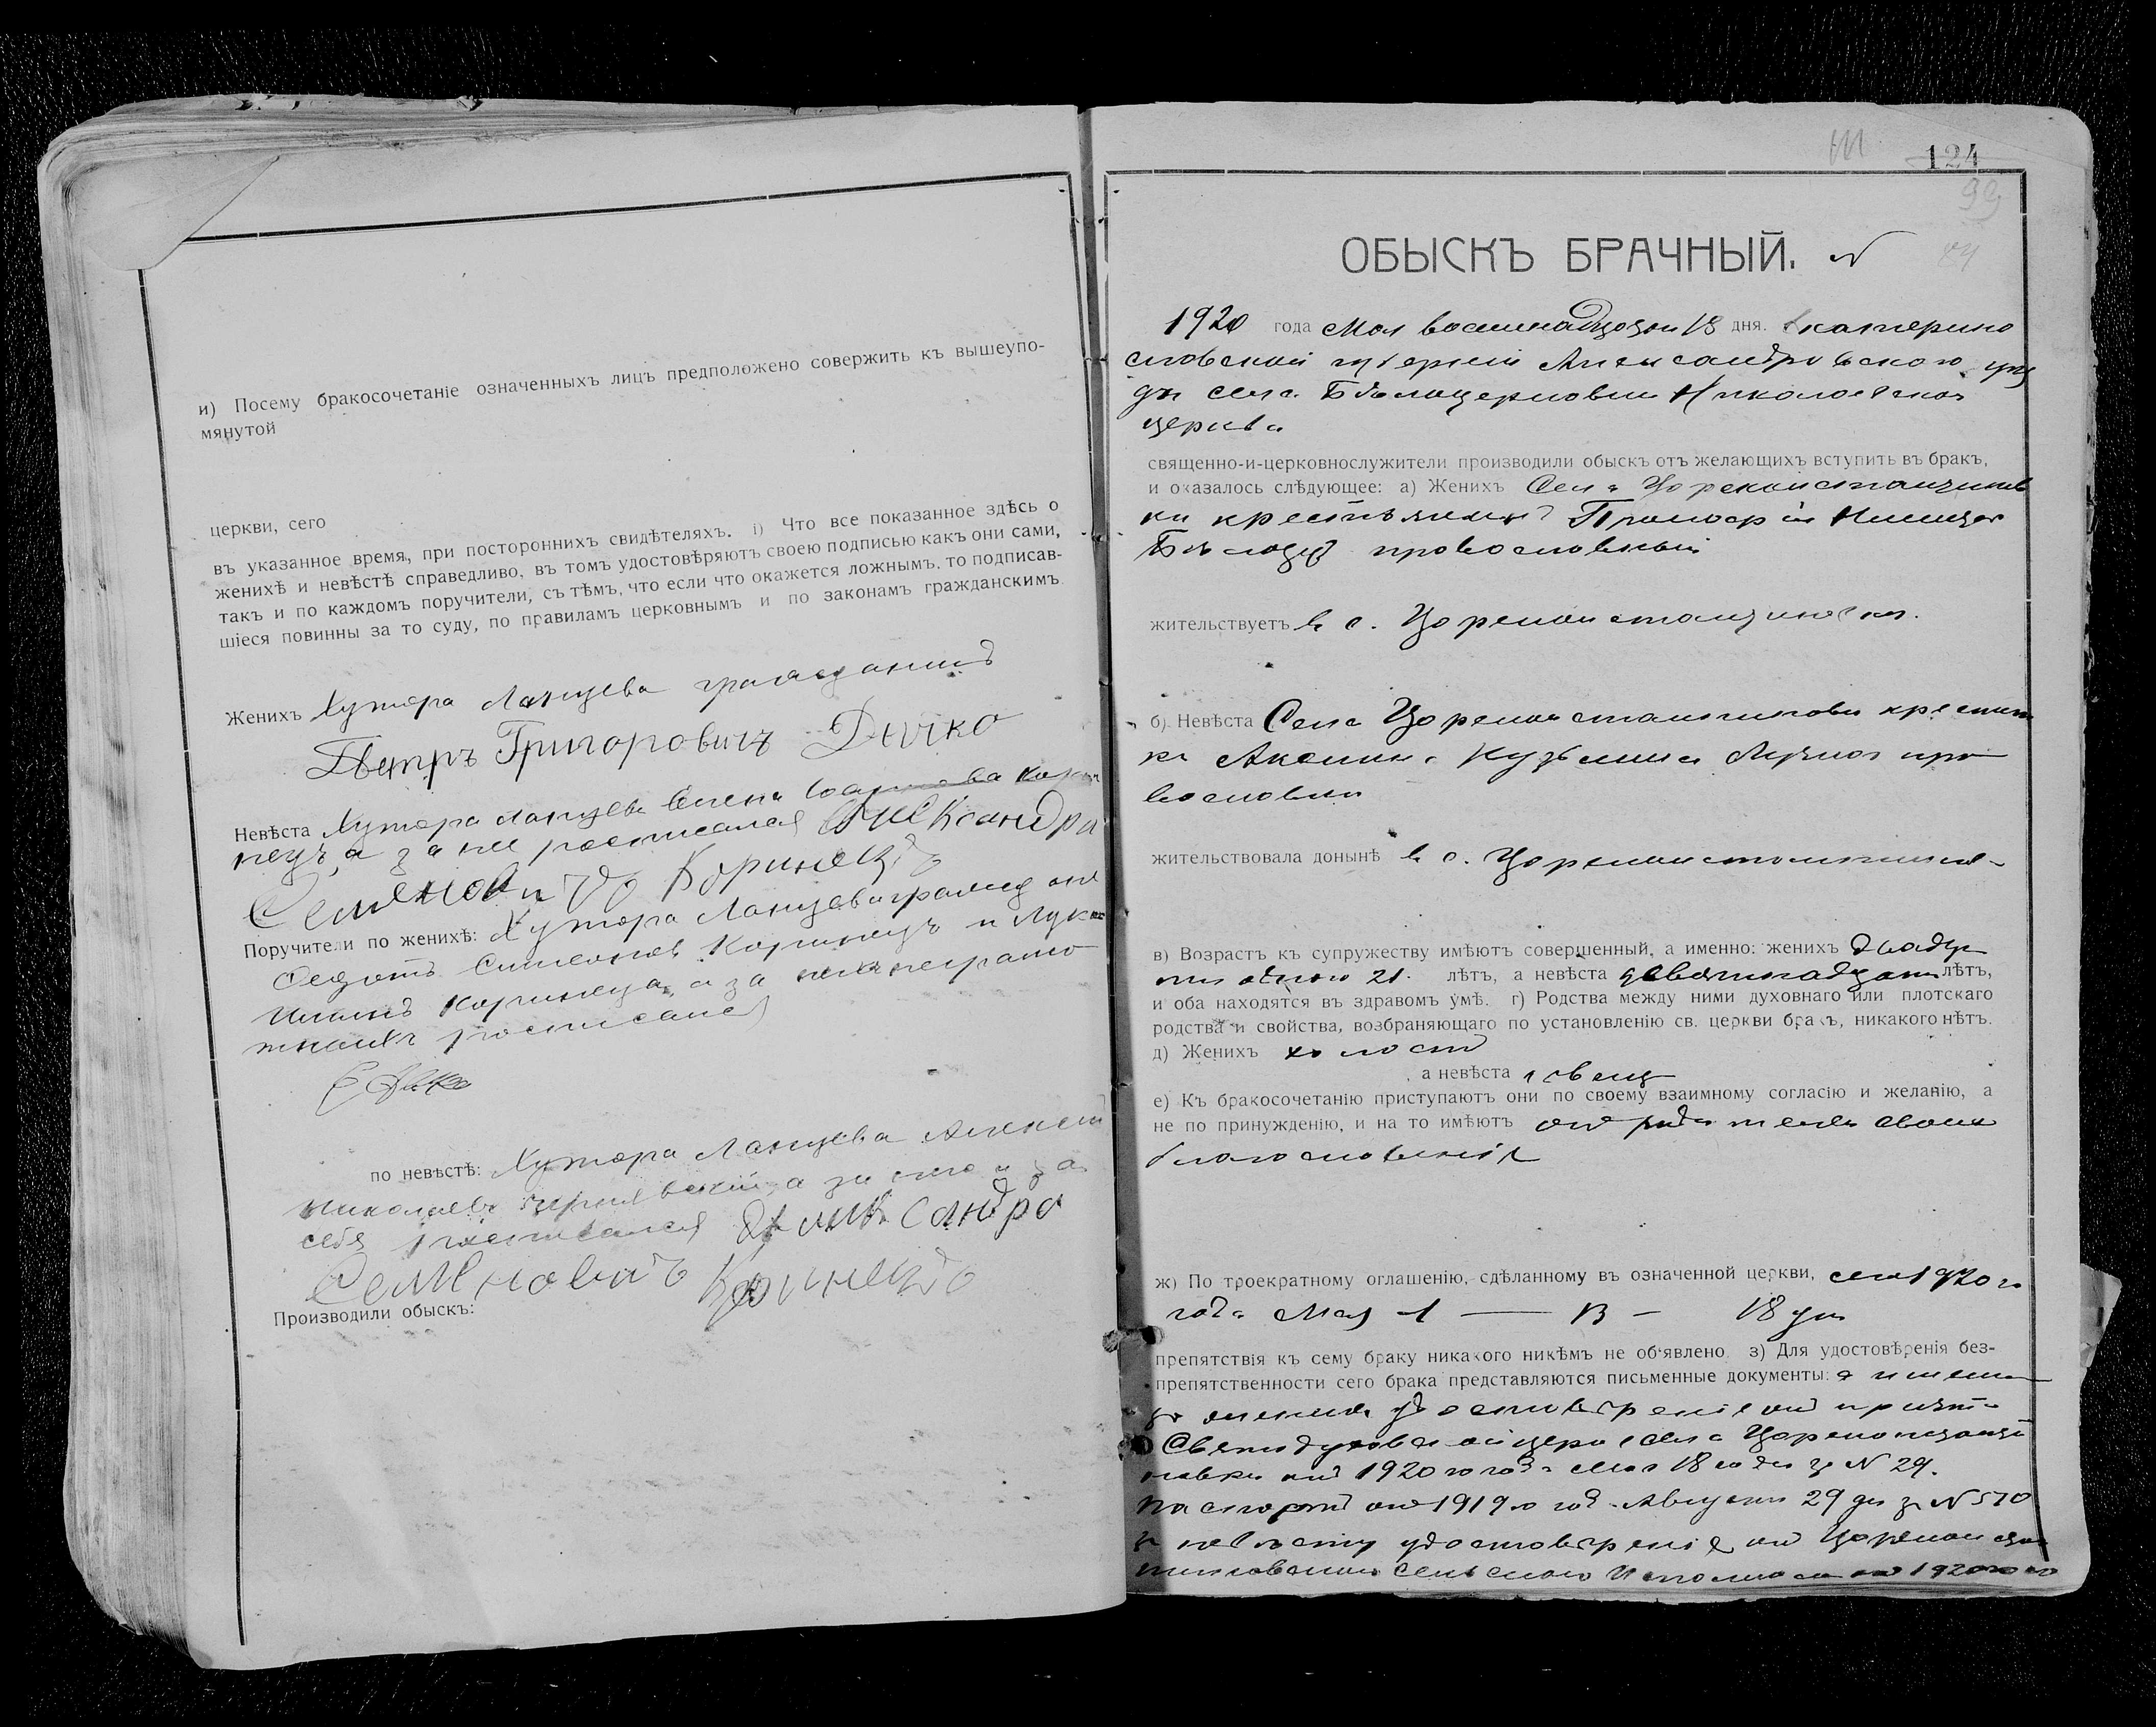 и) Посему бракосочетаніе означенныхъ лицъ предположено совержить къ вышеупо-
мянутой
церкви, сего
въ указанное время, при постороннихъ свидѣтеляхъ. і) Что все показанное здѣсь о
женихѣ и невѣстѣ справедливо, въ томъ удостовѣряютъ своею подписью какъ они сами,
такъ и по каждомъ поручители, съ тѣмъ, что если что окажется ложнымъ, то подписав-
шіеся повинны за то суду, по правиламъ церковнымъ и по законамъ гражданскимъ.
Женихъ Хутора Ланцева гражданинъ
Петръ Григоровичъ Дычко
Невѣста Хутора Ланцева Елена
а за нее росписался Александра
Семеновичъ Коринецъ
Поручители по женихѣ: Хутора Ланцева
Федотъ Симеоновъ Коринецъ и Лука
Коринец а за
росписался
по невѣстѣ: Хутора Ланцева Алексей
Николаевъ а за него и за
себя росписался Александра
Семеновичъ Коринецъ
Производили обыскъ:
124
99
ОБЫСКЪ БРАЧНЫЙ. N
1920 года Мая восемнадцатаго 18 дня. Екатерино
славской губерніи Александровскаго уѣз
да села Бѣлоцерковки Николаевская
церкви
священно-и-церковнослужители производили обыскъ отъ желающихъ вступить въ бракъ,
и оказалось слѣдующее: а) Женихъ Села Цареконстантинов
ки крестьянинъ
православный
жительствуетъ в с. Цареконстантиновка.
б) Невѣста Села Цареконстантиновки крестьян
ка Кузьмина пра
вославная
жительствовала донынѣ в с. Цареконстантинов
в) Возрастъ къ супружеству имѣютъ совершенный, а именно: женихъ двадца
ти одного 21. лѣтъ, а невѣста девятнадцати лѣтъ,
и оба находятся въ здравомъ умѣ. г) Родства между ними духовнаго или плотскаго
родства и свойства, возбраняющаго по установленію св. церкви бракъ, никакого нѣтъ.
д) Женихъ холостъ
а невѣста девица
е) Къ бракосочетанію приступаютъ они по своему взаимному согласію и желанію, а
не по принужденію, и на то имѣютъ отъ родителей своихъ
благословеніе
ж) По троекратному оглашенію, сдѣланному въ означенной церкви, сего 1920 го
года Мая 1 — 13 — 18 дня
препятствія къ сему браку никакого никѣмъ не объявлено. з) Для удостовѣренія без-
препятственности сего брака представляются письменные документы: а именно
за жениха удостовѣреніе отъ причта
Святодуховской церкви села Цареконстанти
новки отъ 1920 го года Мая 18 го дня за N 29.
Паспортъ отъ 1919 го год. Августа 29 дня за N 570
за невѣсту удостовѣреніе отъ Цареконстан
тиновскаго Сельскаго Исполкома отъ 1920 го